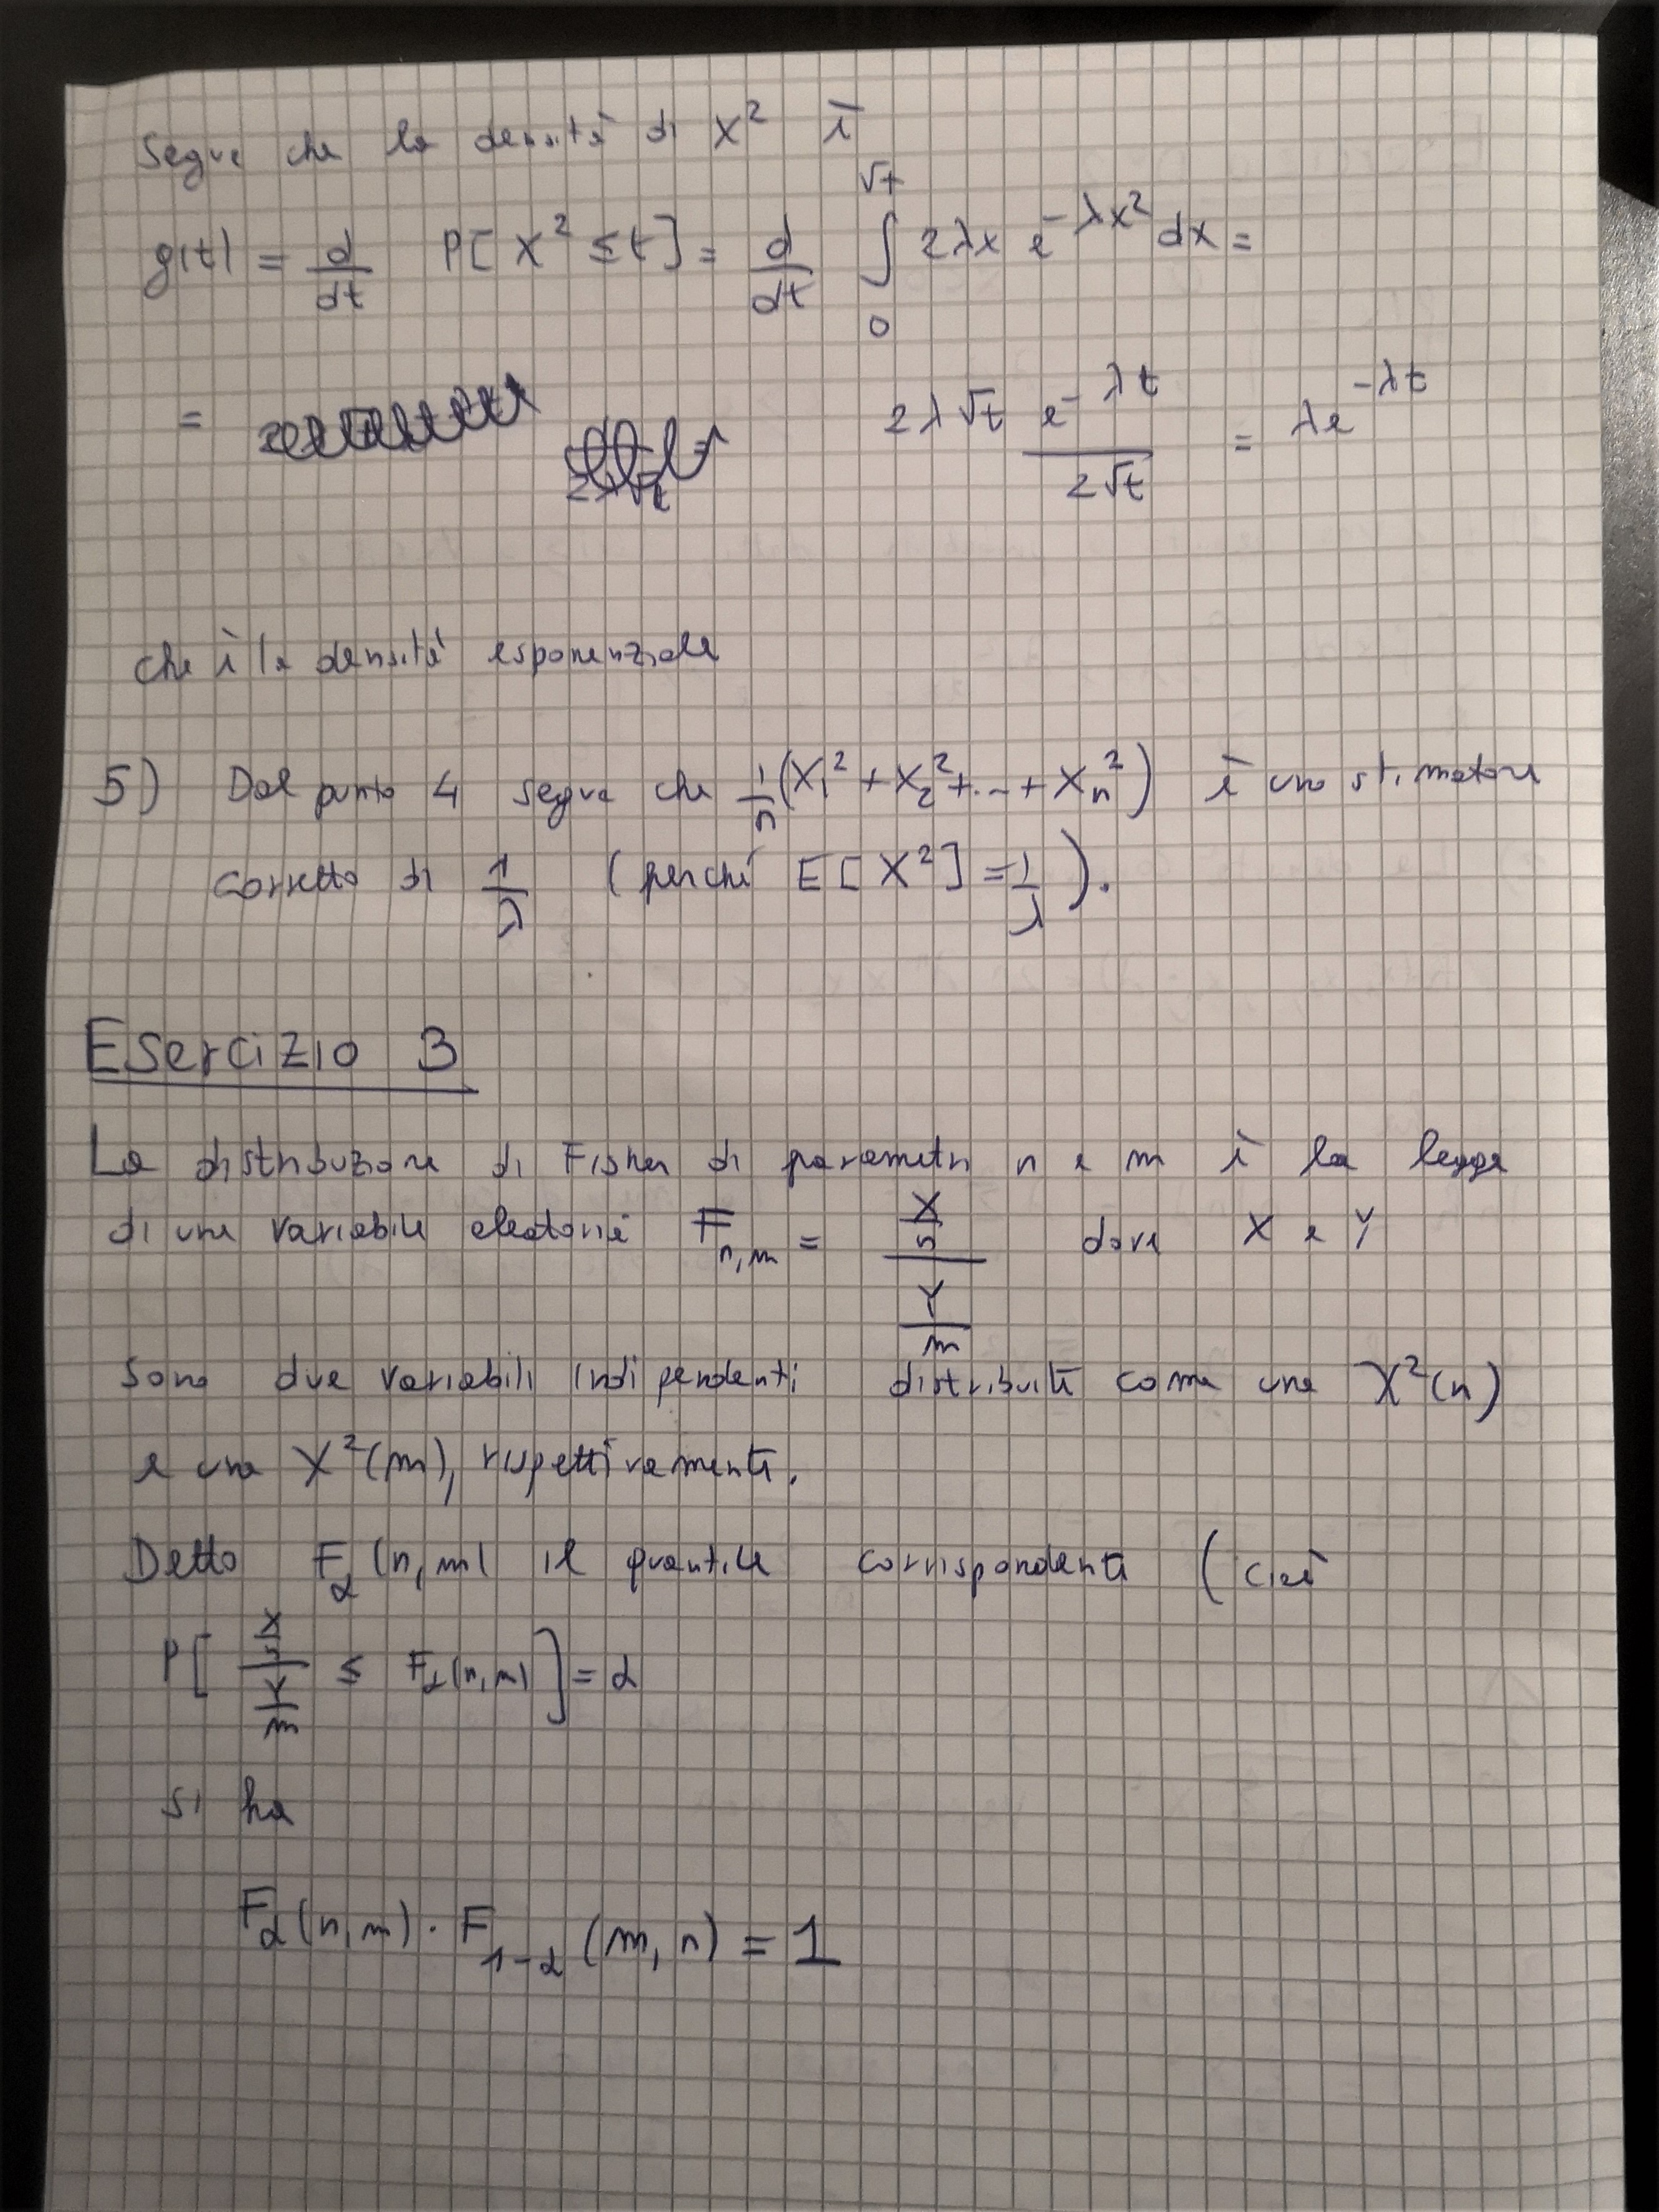 Segue che la densità di X² è
g(t) = d/dt P[X² ≤ t] = d/dt ∫₀^√t 2λx e^-λx² dx =
= 2λ√t e^-λt / 2√t = λe^-λt
che è la densità esponenziale
5) Dal punto 4 segue che 1/n (X₁² + X₂² + ... + Xₙ²) è uno stimatore
corretto di 1/λ (perché E[X²] = 1/λ).
Esercizio 3
La distribuzione di Fisher di parametri n e m è la legge
di una variabile aleatoria F_n,m = (X/n)/(Y/m) dove X e Y
sono due variabili indipendenti distribuite come una X²(n)
e una X²(m), rispettivamente.
Detto F_α(n,m) il quantile corrispondente (cioè
P[(X/n)/(Y/m) ≤ F_α(n,m)] = α
si ha
F_α(n,m) · F_1-α(m,n) = 1